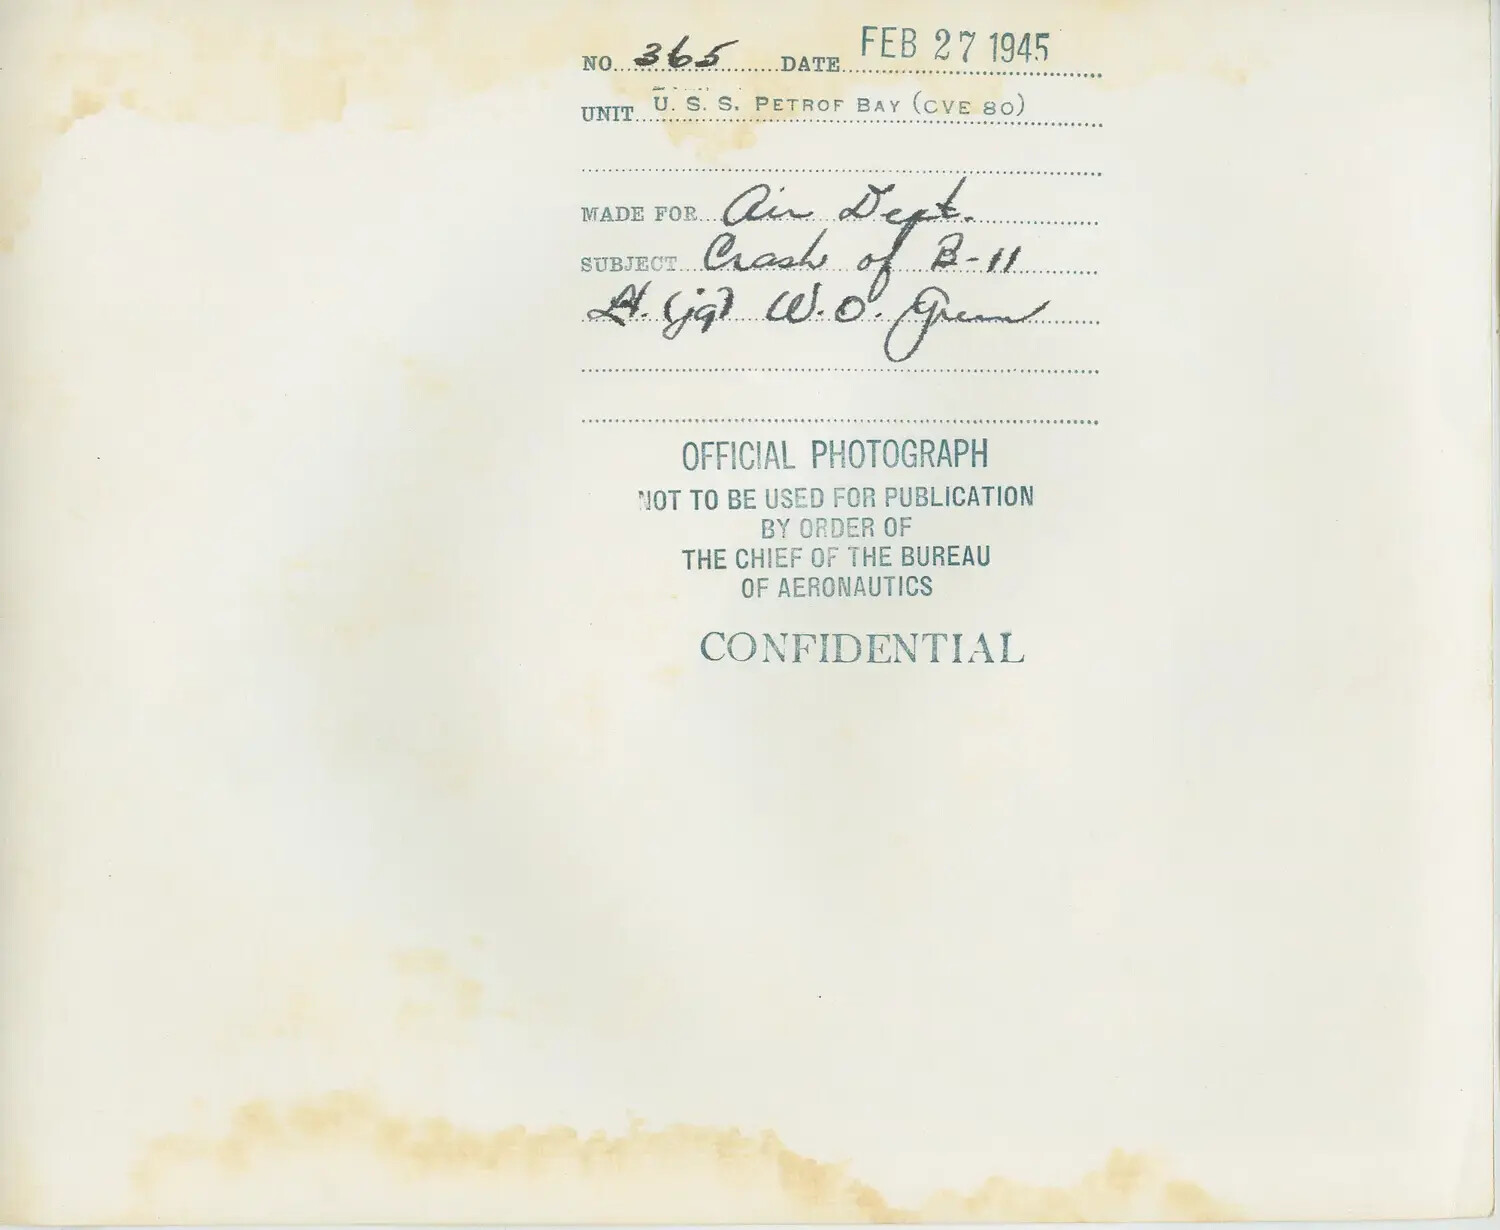 NO. 365 DATE FEB 27 1945
UNIT U. S. S. PETROF BAY (CVE 80)
MADE FOR Air Dept.
SUBJECT Crash of B-11
Lt. (jg) W. O. Green
OFFICIAL PHOTOGRAPH
NOT TO BE USED FOR PUBLICATION
BY ORDER OF
THE CHIEF OF THE BUREAU
OF AERONAUTICS
CONFIDENTIAL